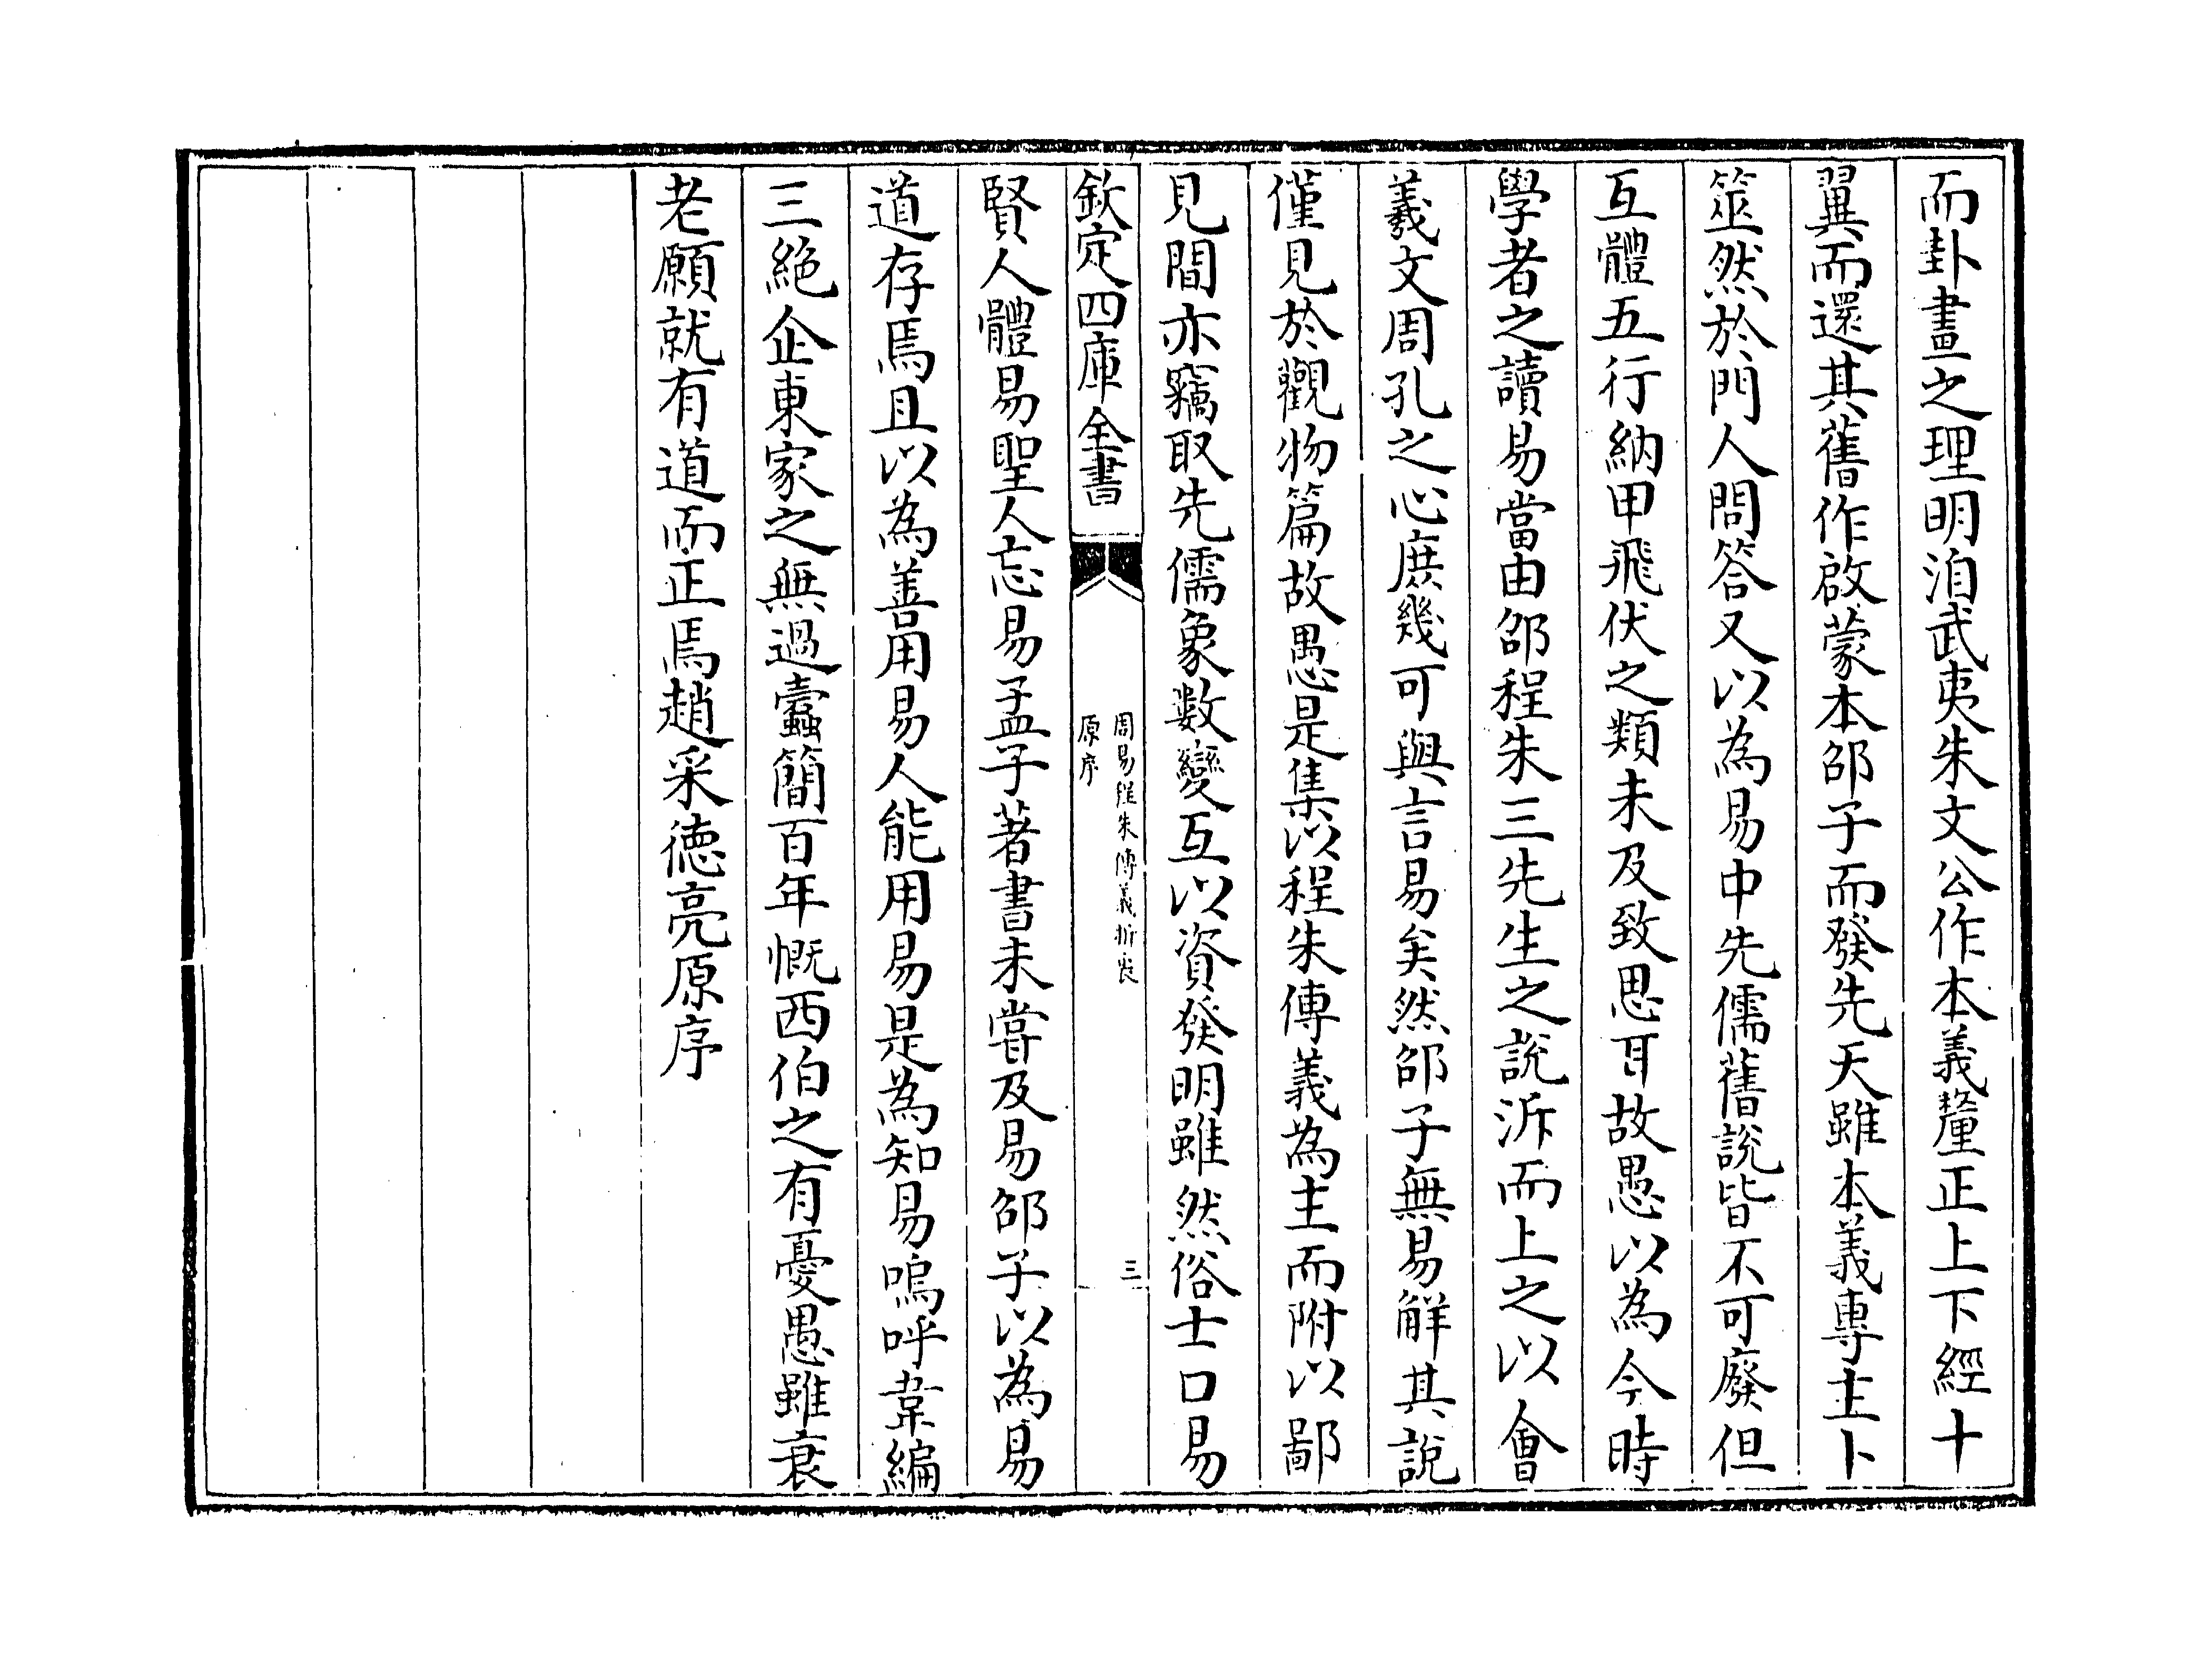 而卦畫之理明洎武夷朱文公作本義釐正上下經十
翼而還其舊作啟蒙本邵子而發先天雖本義專主卜
筮然於門人問答又以為易中先儒舊說皆不可廢但
互體五行納甲飛伏之類未及致思耳故愚以為今時
學者之讀易當由邵程朱三先生之說泝而上之以會
羲文周孔之心庶幾可與言易矣然邵子無易解其說
僅見於觀物篇故愚是集以程朱傳義為主而附以鄙
見間亦竊取先儒象數變互以資發明雖然俗士口易
欽定四庫全書
周易程朱傳義折衷
原序
三
賢人體易聖人忘易孟子著書未嘗及易邵子以為易
道存焉且以為善用易人能用易是為知易嗚呼韋編
三絶企東家之無過蠹簡百年慨西伯之有憂愚雖衰
老願就有道而正焉趙采徳亮原序